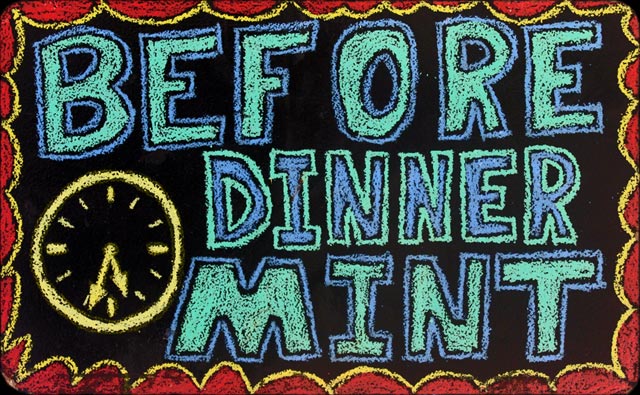 BEFORE
DINNER
MINT